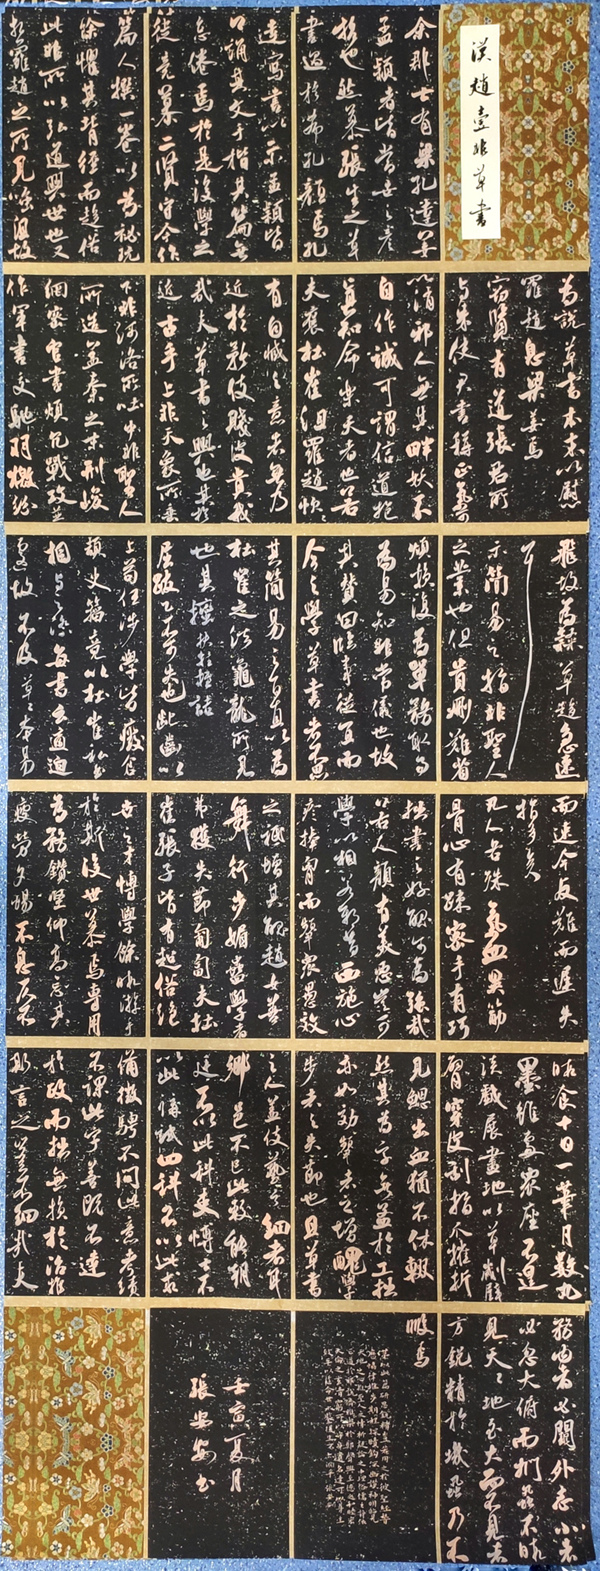 汉赵壹非草书
余郡士有梁孔達姜
孟穎者皆當世之彦
哲也然慕張生之草
書過於希孔顏焉孔
達寫書以示孟穎皆
口誦其文手楷其篇無
怠倦焉於是後學之
徒竞慕二賢守令作
篇人撰一卷以為秘玩
余懼其背經而趍俗
此非所以弘道興世也又
想羅趙之所見嗤沮故
為說草書本末以慰
羅趙息梁姜焉
竊覽有道張君所
與朱使君書稱正氣可
以消邪人無其衅妖不
自作誠可謂信道抱
真知命樂天者也若
夫褒杜崔沮羅趙忻忻
有自臧之意者無乃
近於矜伎賤彼貴我
哉夫草書之興也其於
近古乎上非天象所垂
下非河洛所吐中非聖人
所造盖秦之末刑峻
網密官書煩冗戰攻並
作軍書交馳羽檄紛
飛故為隸草趍急速
耳
示簡易之指非聖人
之業也但貴删難省
煩損復為單務取易
為易知非常儀也故
其贊曰臨事從宜而
今之學草書者不思
其簡易之旨直以為
杜崔之法龜龍所見
也其
屈犮乙不可失也齔齒以
上苟任涉學皆廢倉
頡史籀竞以杜崔為楷私書
相與之際每書云適迫
遽故不及草草本易
而速今反難而遲失
指多矣
凡人各殊氣血異筋
骨心有疎密手有巧
拙書之好醜可為強哉
若人顏有美惡豈可
學以相若耶昔西施心
疹捧胸而顰衆愚效
之祗增其醜趙女善
舞行步媚蠱學者
弗獲失節匍匐夫杜
崔張子皆有超俗絕
世之才博學餘暇游手
於斯後世慕焉專用
為務鑽堅仰高忘其
疲勞夕惕不息仄不
暇食十日一筆月數丸
墨雖處衆座不遑
談戲展指畫地以草劌壁
臂穿皮刮指爪摧折
見鰓出血猶不休輟
然其為字無益於工拙
亦如効顰者之增醜學
步者之失節也且草書
之人盖伎藝之細者耳
鄉邑不以此較能朝
廷不以此科吏博士不
以此講試四科不以此求
備徵聘不問此意考績
不課此字善既不達
於政而拙無損於治推
斯言之豈不細哉夫
務内者必闕外志小者
必忽大俯而捫蝨不暇
見天天地至大而不見者
方鋭精於蟣蝨乃不
暇焉
壬寅夏月